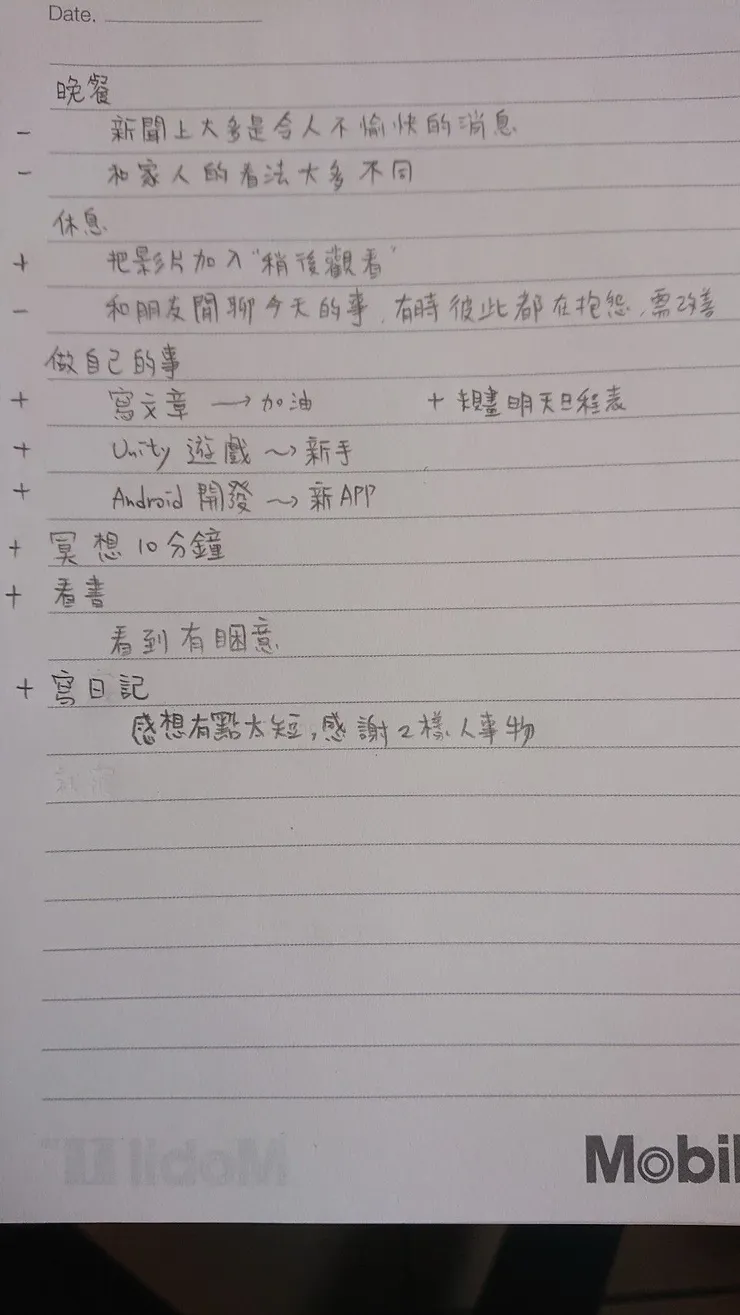 Date.
晚餐
- 新聞上大多是令人不愉快的消息
- 和家人的看法大多不同
休息
+ 把影片加入"稍後觀看"
- 和朋友閒聊今天的事,有時彼此都在抱怨,需改善
做自己的事
+ 寫文章 → 加油 + 規畫明天日程表
+ Unity 遊戲 ~> 新手
+ Android 開發 ~> 新APP
+ 冥想10分鐘
+ 看書
看到有睏意
+ 寫日記
感想有點太短,感謝2樣人事物
Mobil